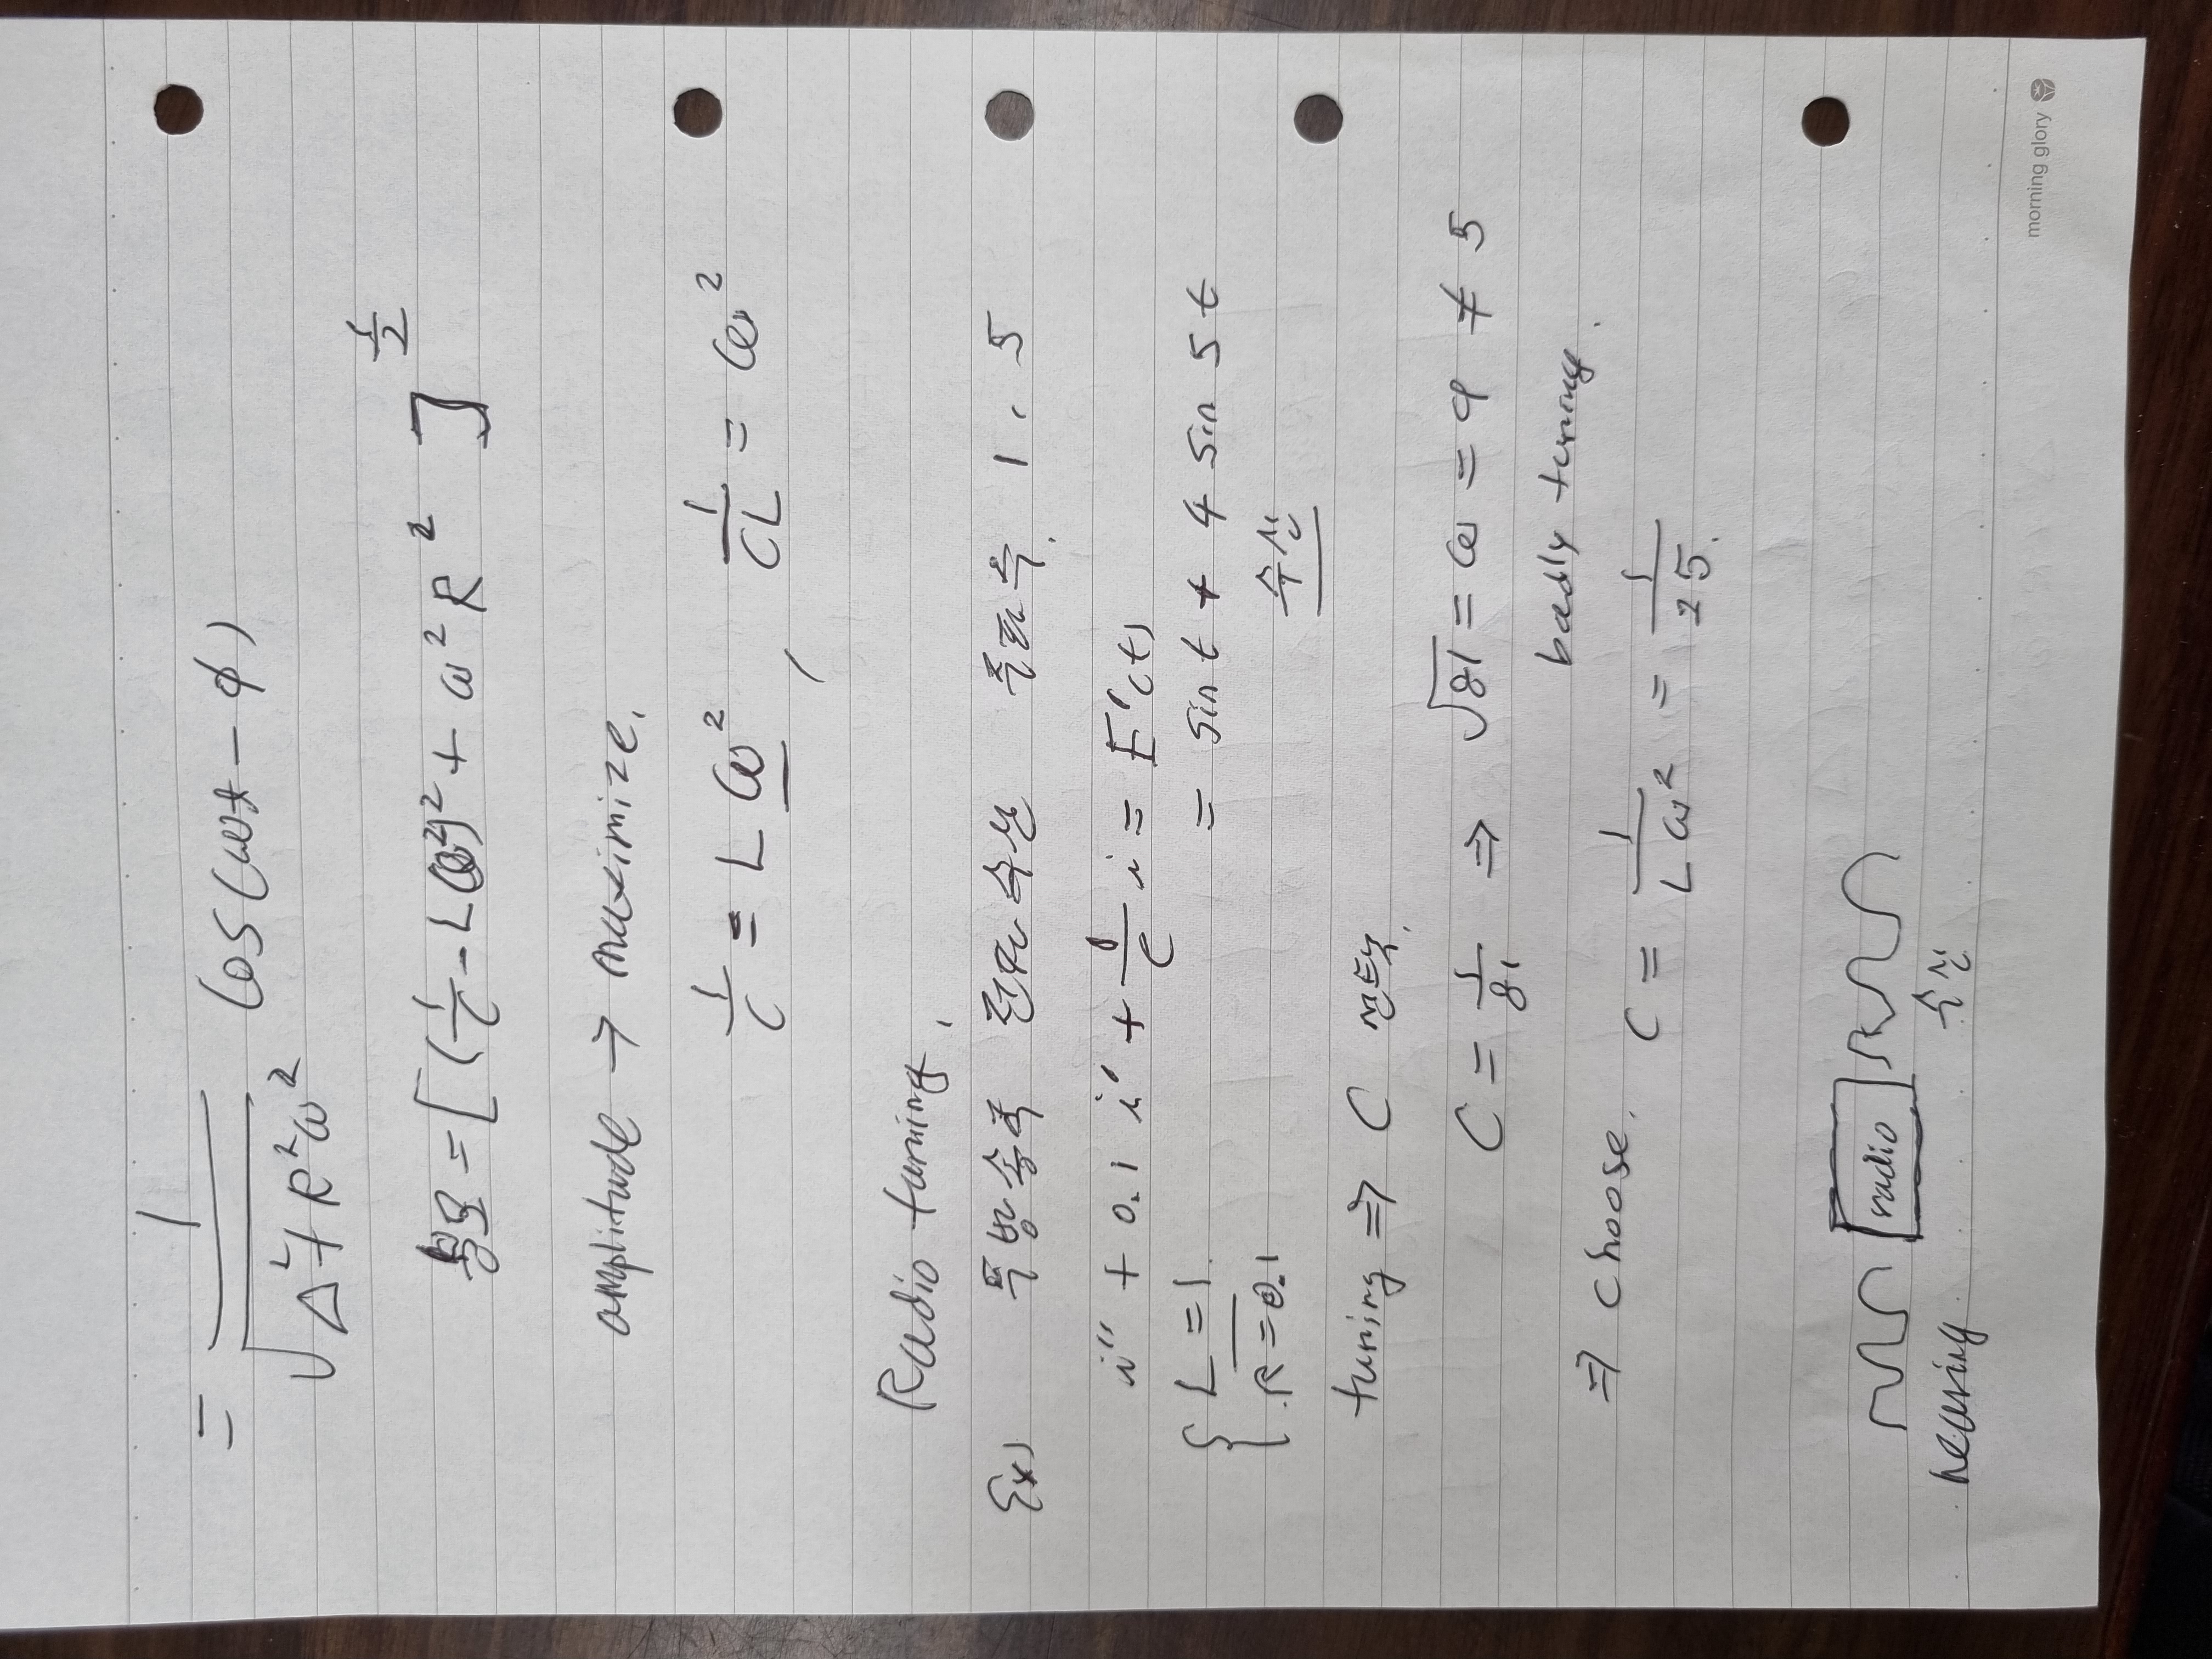 = 1/√(Δ²+R²ω²) cos(ωt - φ)
분모 = [(1/C - Lω²)² + ω²R²]^(1/2)
amplitude → maximize.
1/C = Lω², 1/CL = ω²
Radio tuning,
Ex) 두방송국 전파수신 주파수. 1, 5
i'' + 0.1 i' + 1/C i = E'(t)
{ L = 1. = sin t + 4 sin 5t
R = 0.1 수신
tuning ⇒ C 선택.
C = 1/81 ⇒ √81 = ω = 9 ≠ 5
badly tuning.
⇒ choose. C = 1/Lω² = 1/25.
radio
hearing 수신
morning glory